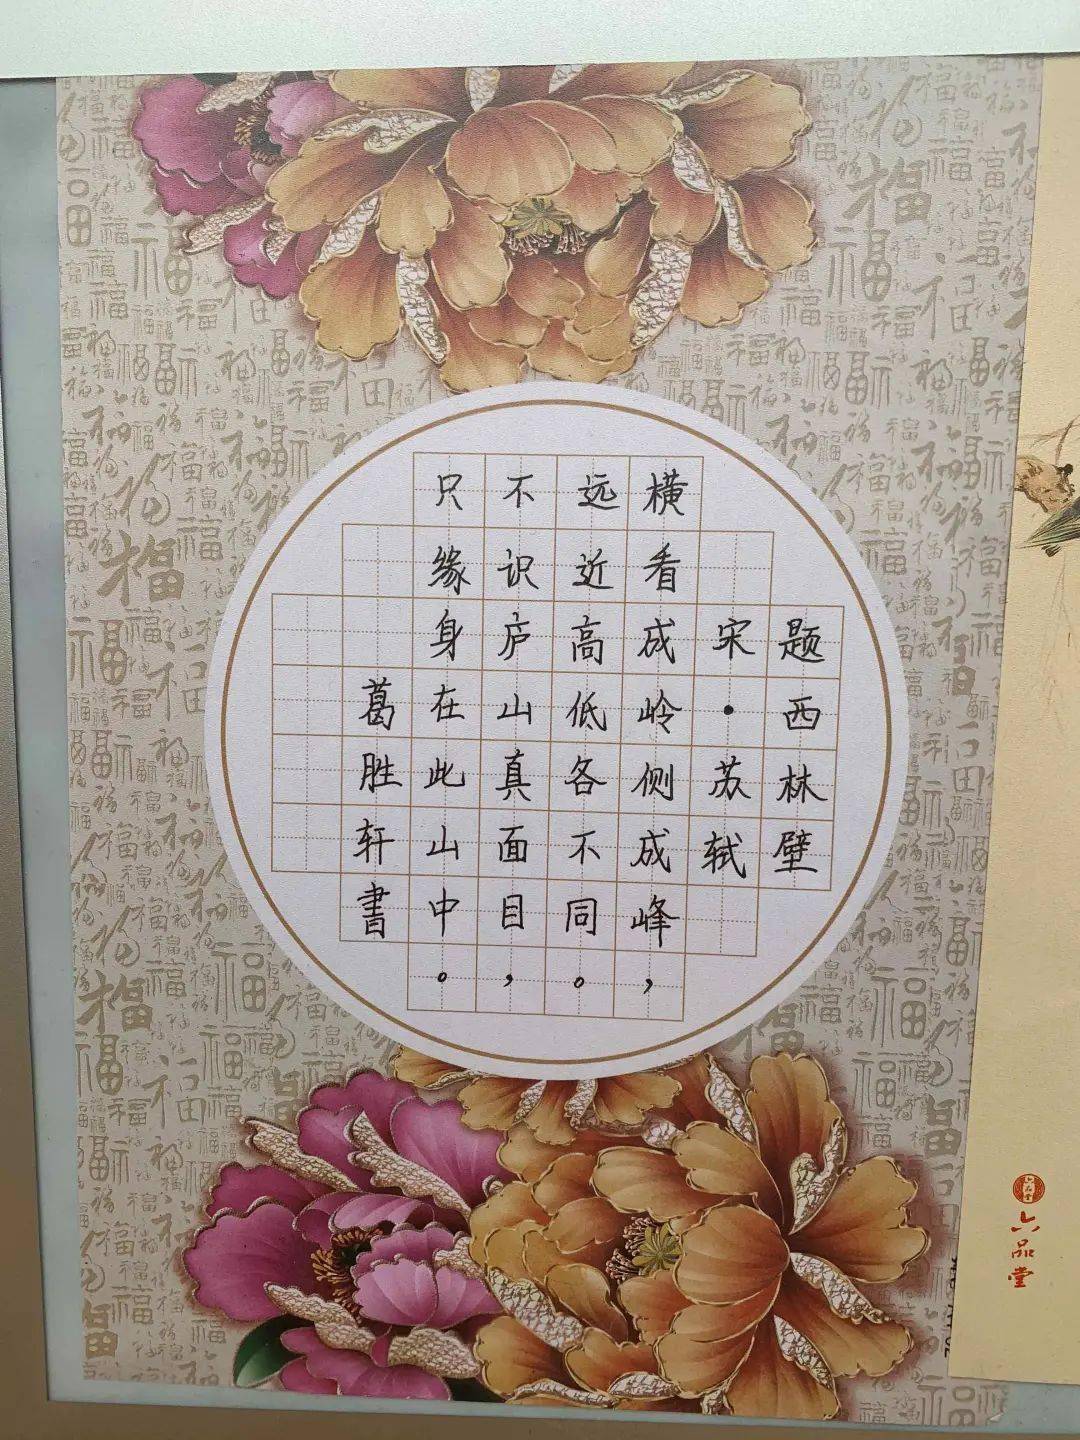 题西林壁
宋·苏轼
横看成岭侧成峰，
远近高低各不同。
不识庐山真面目，
只缘身在此山中。
葛胜轩書
六品堂